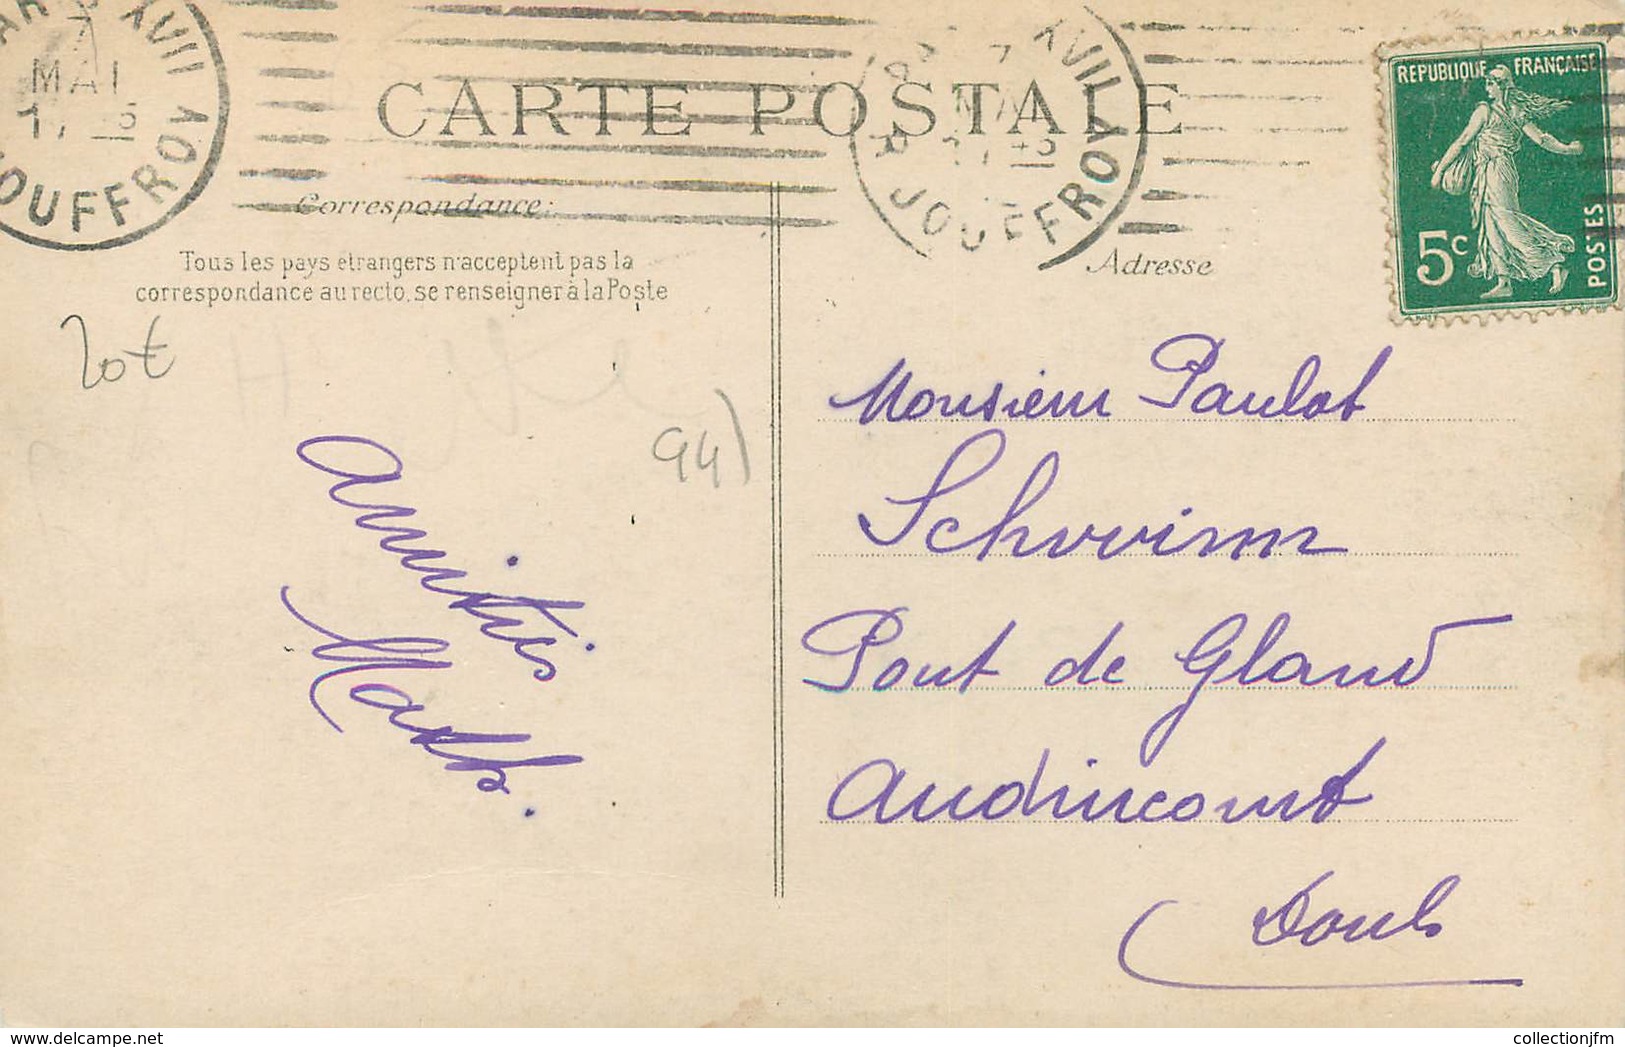 PARIS XVII
7
MAI
R. JOUFFROY
PARIS XVII
7
MAI
R. JOUFFROY
CARTE POSTALE
REPUBLIQUE FRANÇAISE
5c
POSTES
Correspondance:
Adresse
Tous les pays etrangers n'acceptent pas la
correspondance au recto, se renseigner à la Poste
20€
94)
Amitiés
Monsieur Paulot
Schwimm
Pont de Gland
Audincourt
Doubs
www.delcampe.net
collectionjfm